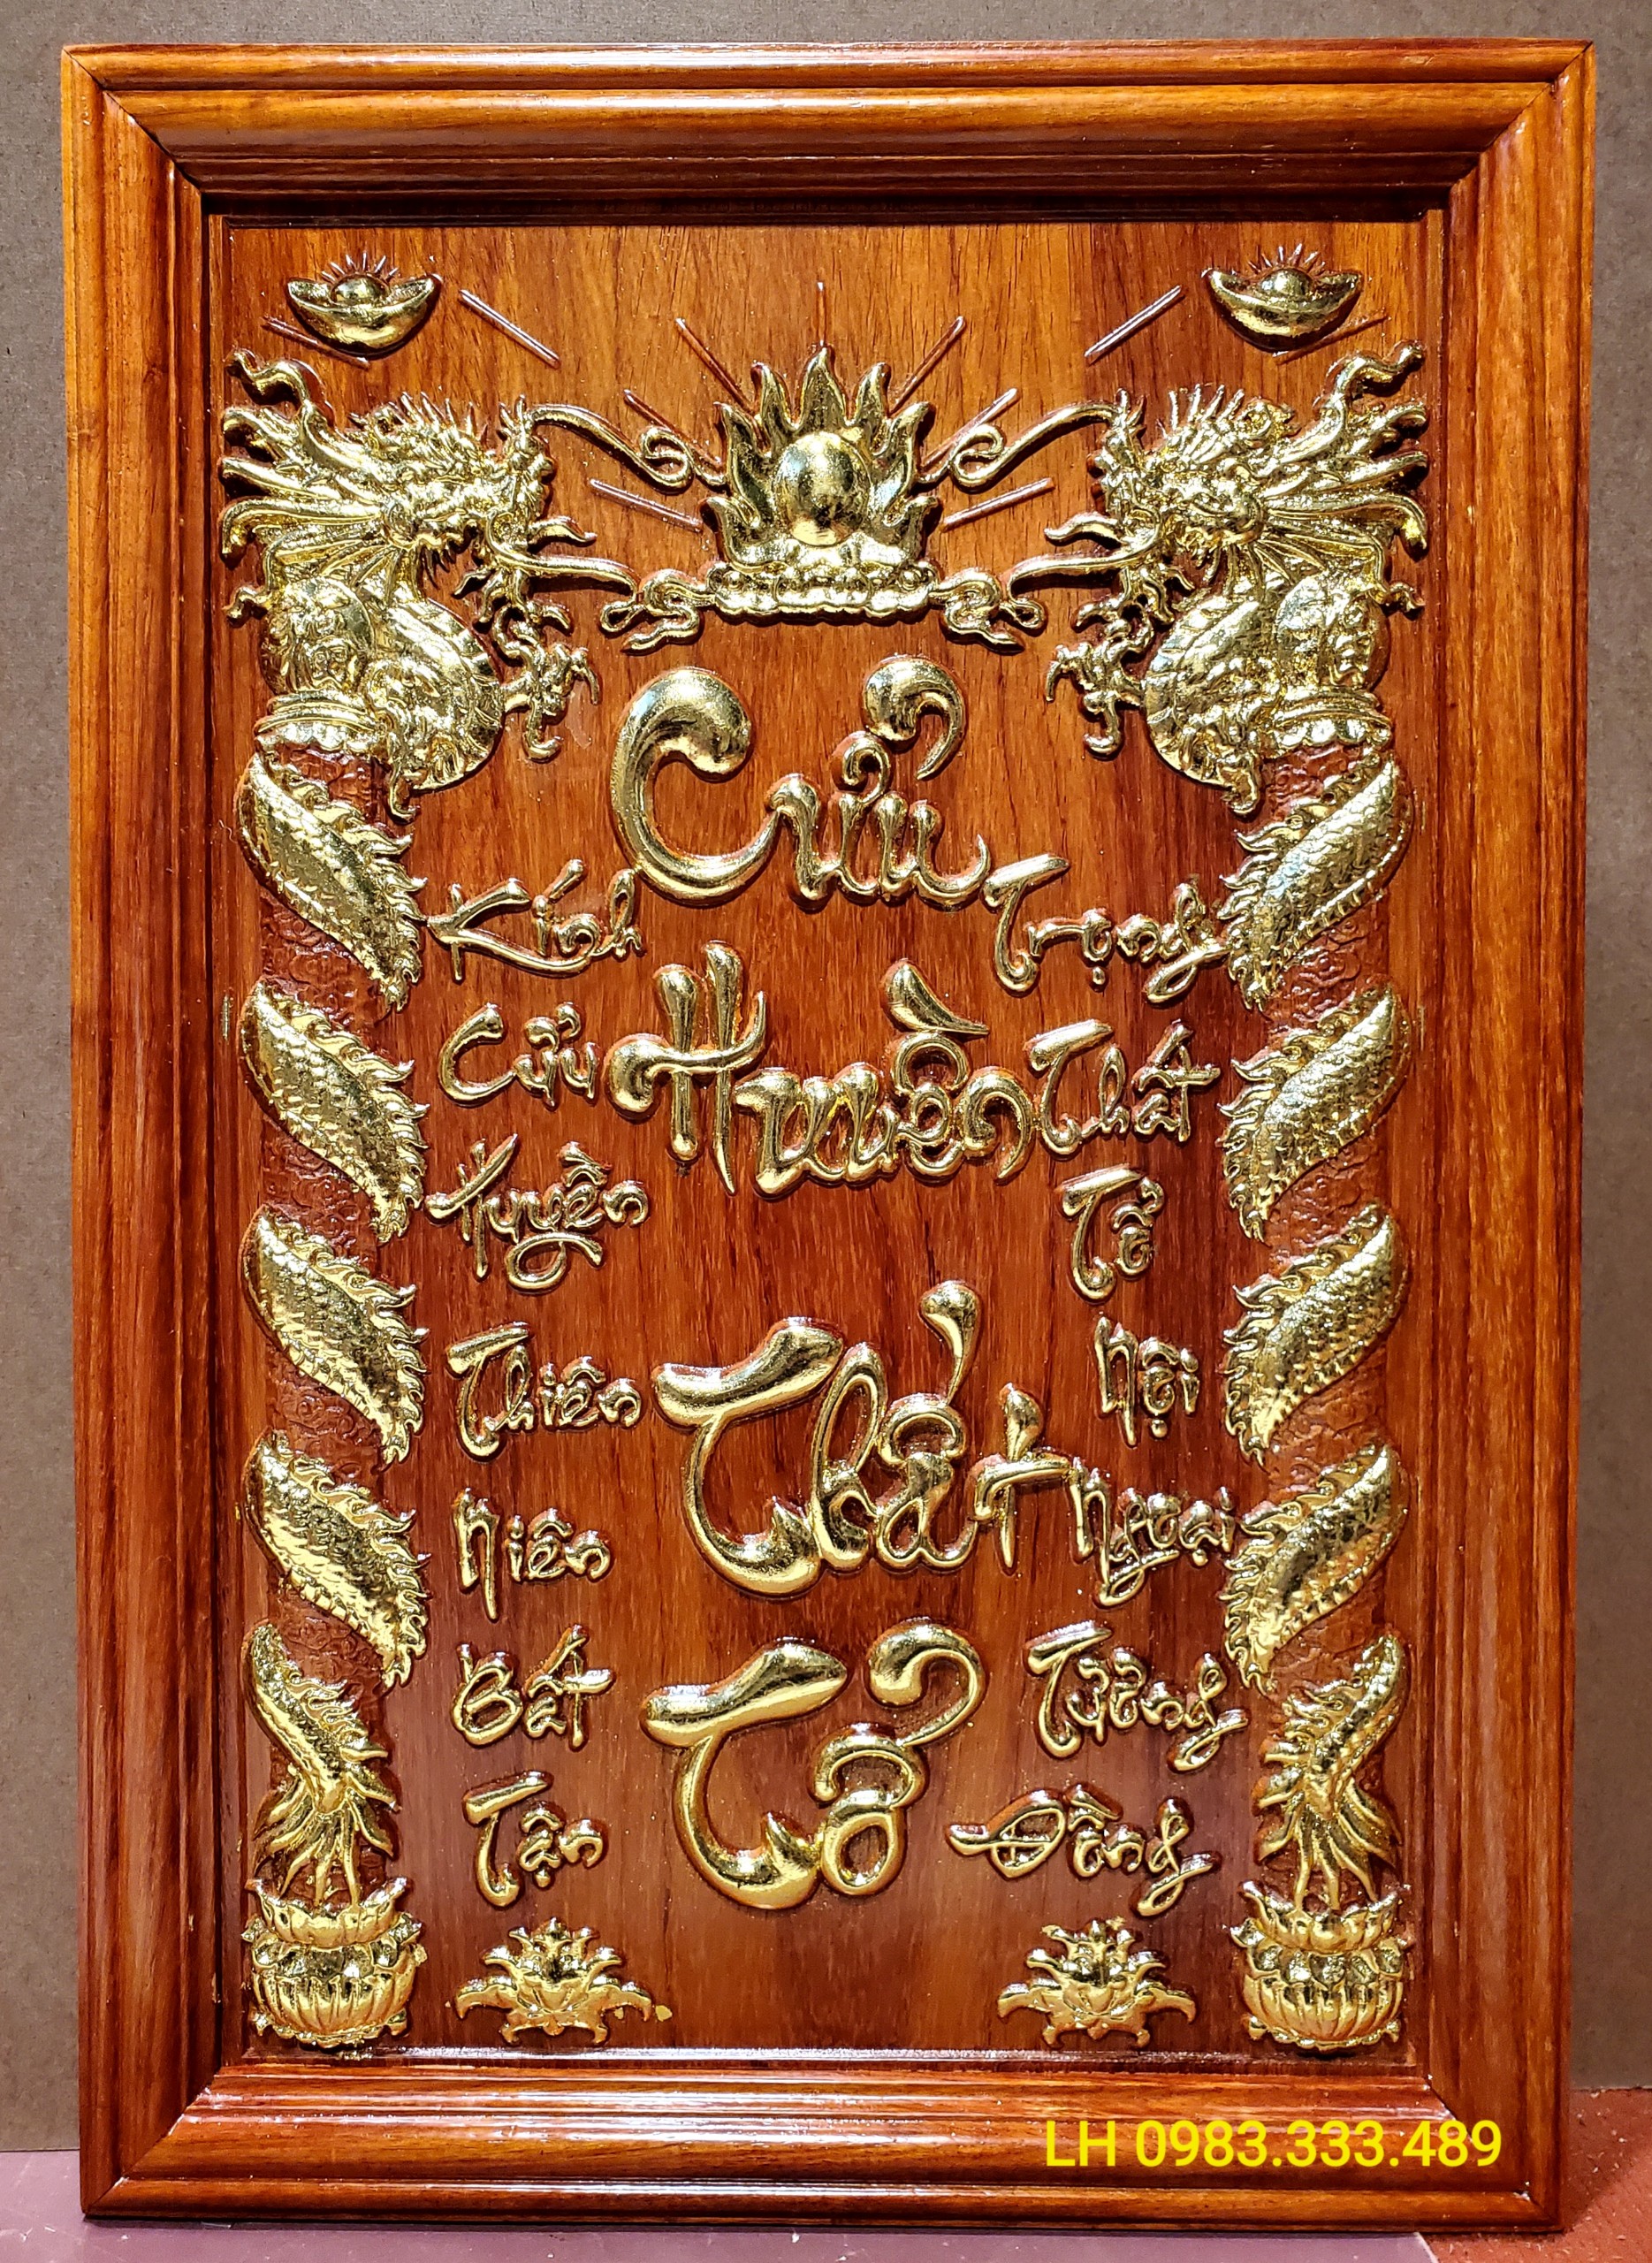 Cửu
Huyền
Thất
Tổ
Kính
Cửu
Huyền
Thiên
Niên
Bất
Tận
Trọng
Thất
Tổ
Nội
Ngoại
Tương
Đồng
LH 0983.333.489